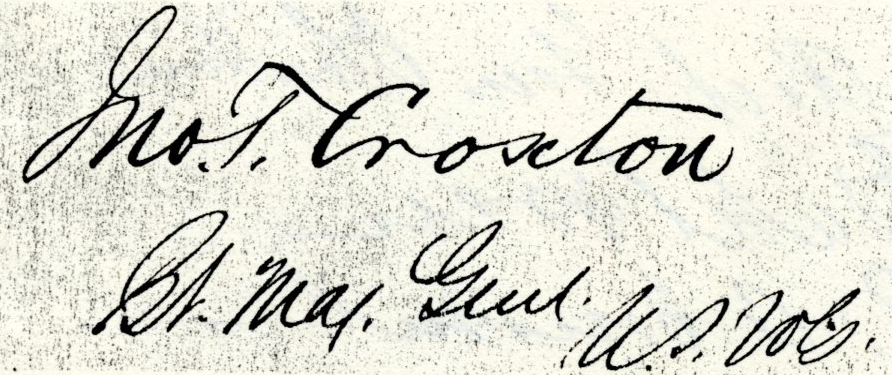 Jno. T. Croxton
Bt. Maj. Genl. U.S. Vols.